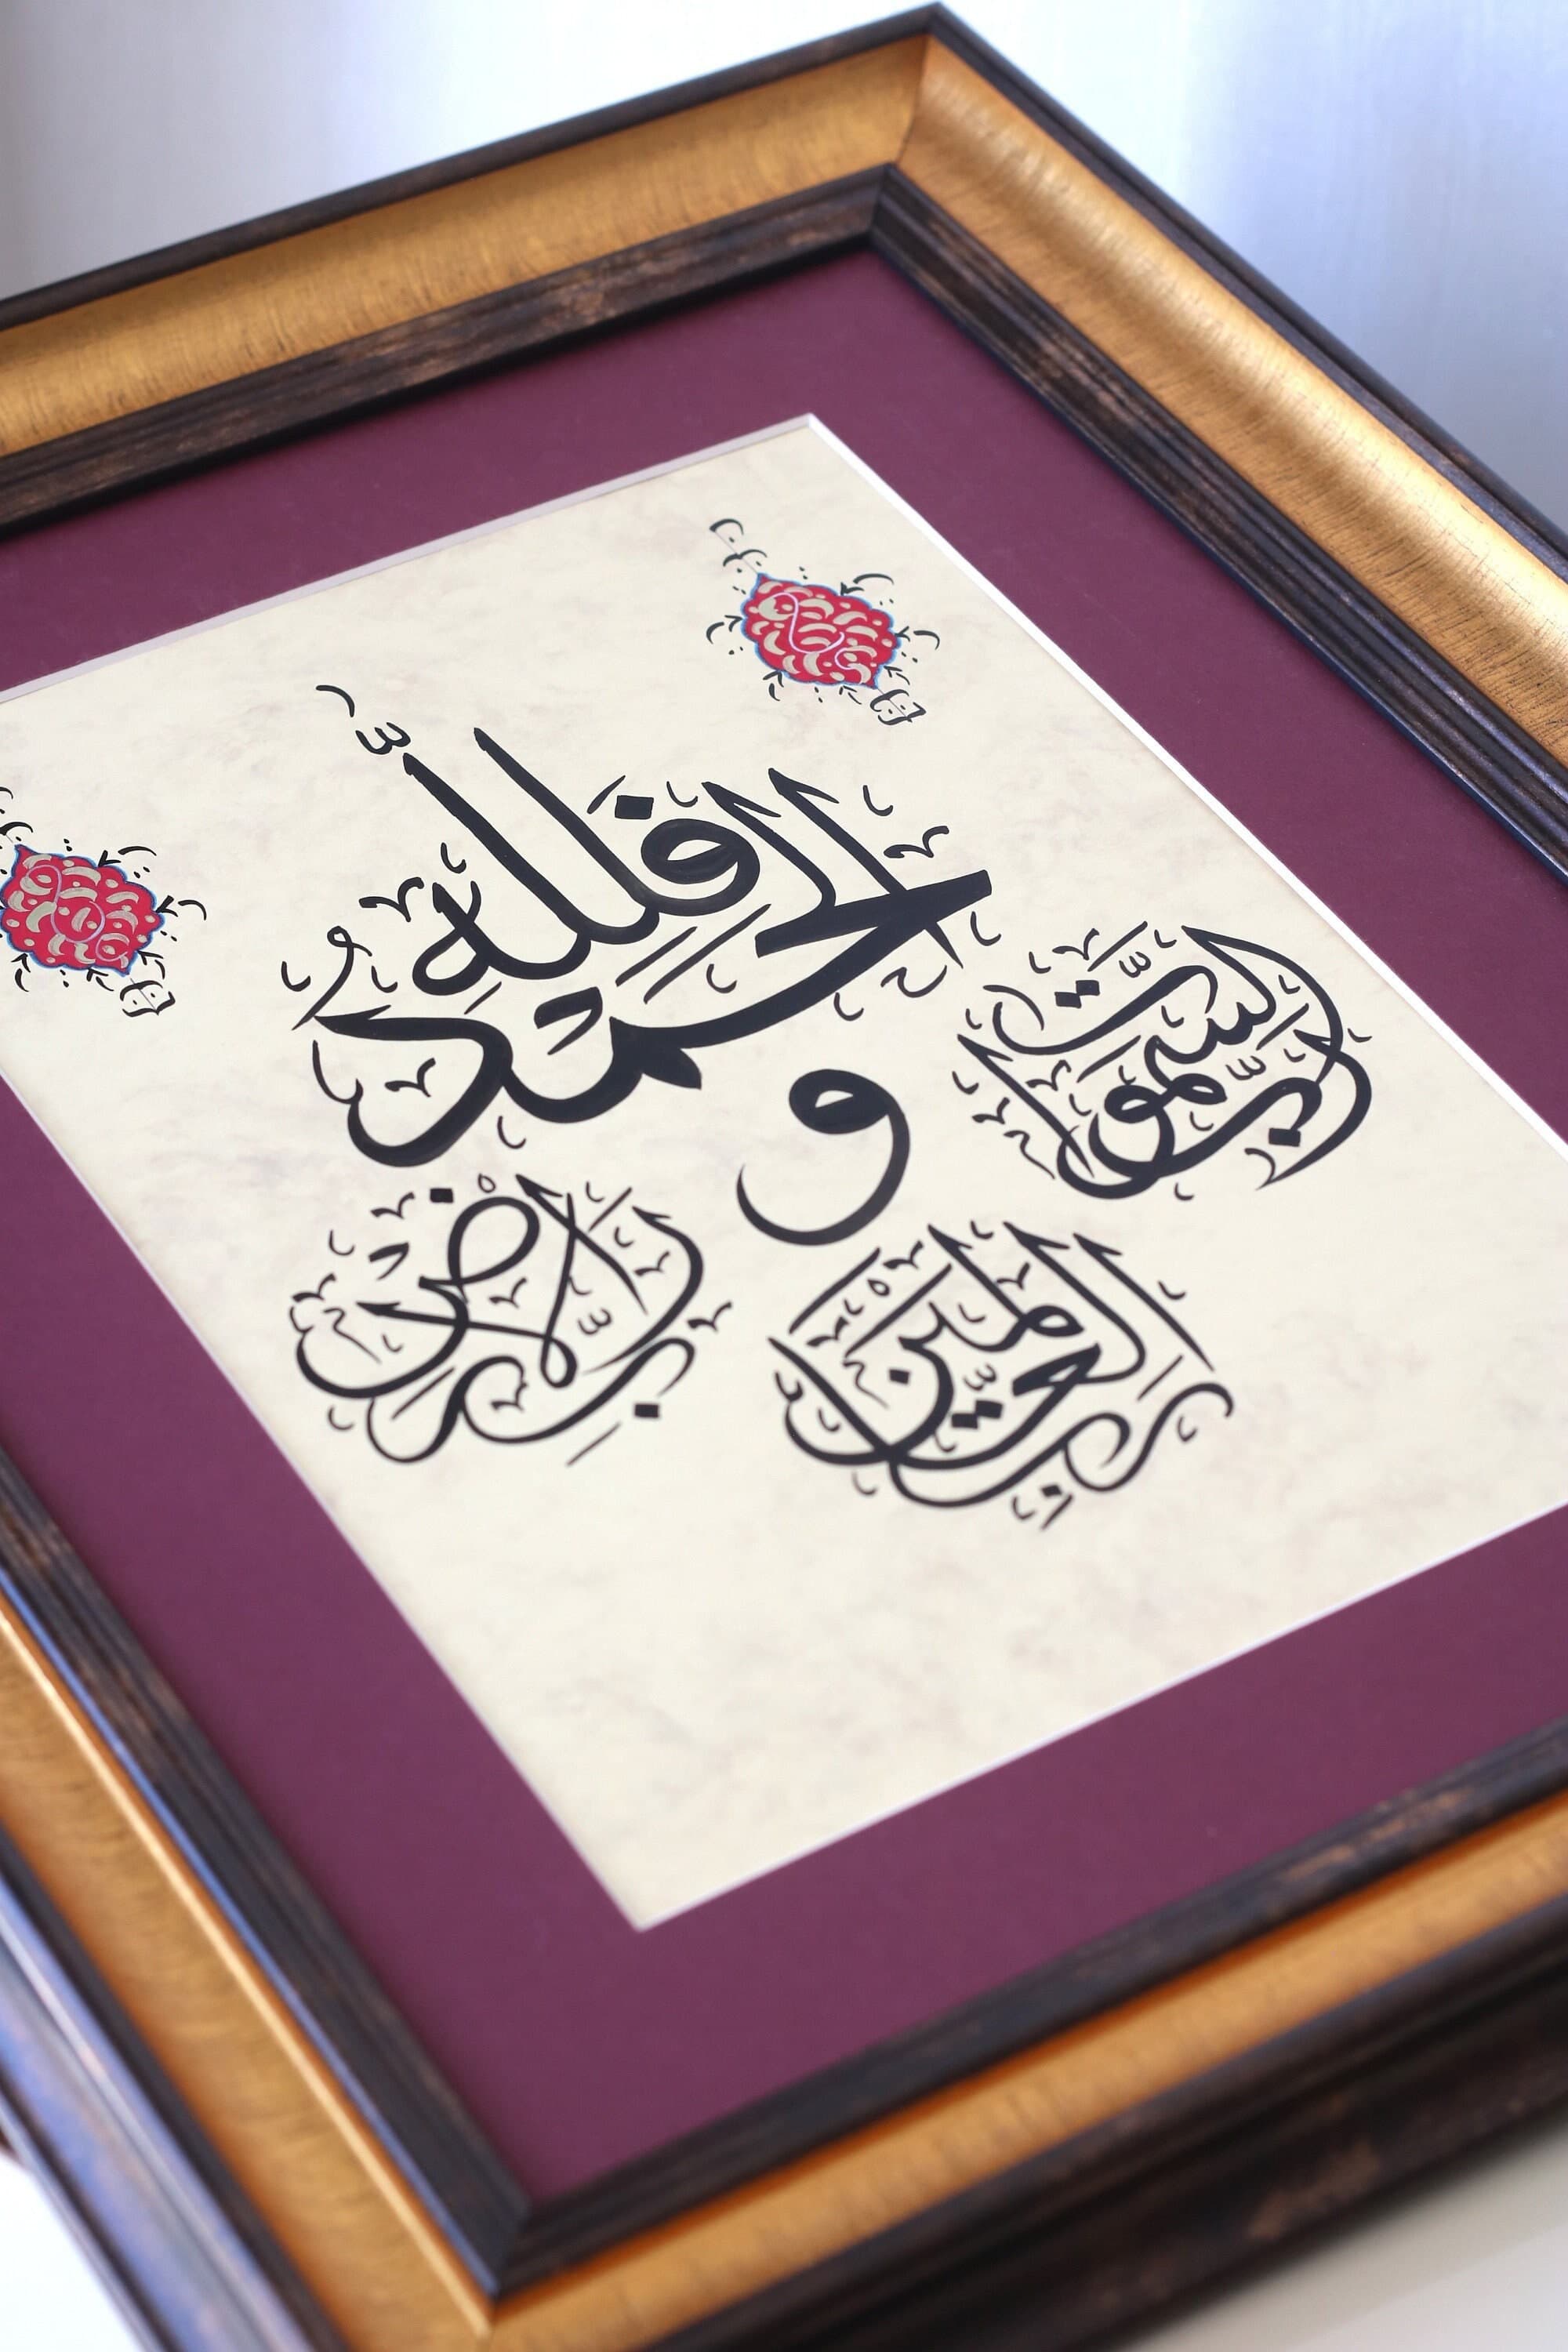 فَلِلّٰهِ الْحَمْدُ
رَبِّ السَّمٰوٰتِ
وَ
رَبِّ الْاَرْضِ
رَبِّ الْعٰلَمِينَ